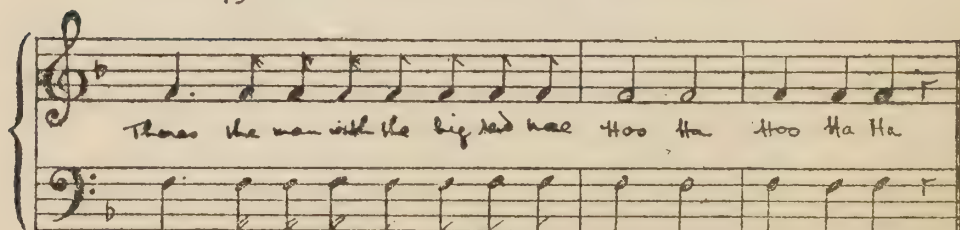 Theres the man with the big red nose Hoo Ha Hoo Ha Ha